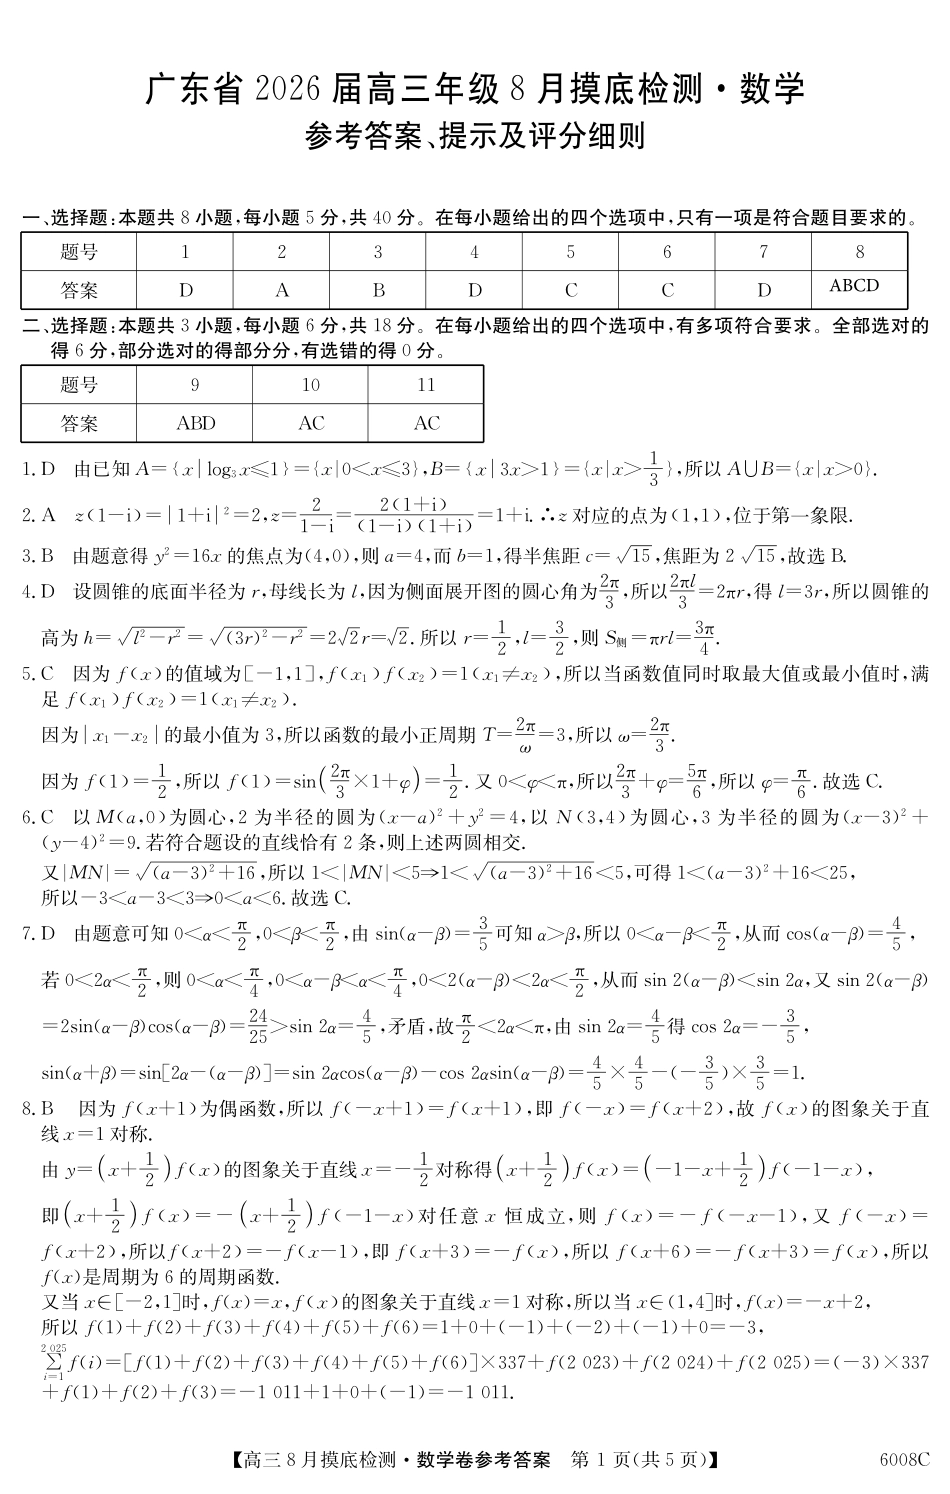 广东省 2026 届高三年级 8 月摸底检测·数学
参考答案、提示及评分细则
一、选择题:本题共 8 小题,每小题 5 分,共 40 分。在每小题给出的四个选项中,只有一项是符合题目要求的。
题号 1 2 3 4 5 6 7 8
答案 D A B D C C D ABCD
二、选择题:本题共 3 小题,每小题 6 分,共 18 分。在每小题给出的四个选项中,有多项符合要求。全部选对的
得 6 分,部分选对的得部分分,有选错的得 0 分。
题号 9 10 11
答案 ABD AC AC
1. D 由已知 A={x|log₃x⩽1}={x|0<x⩽3},B={x|3x>1}={x|x>1/3},所以 A∪B={x|x>0}.
2. A z(1-i)=|1+i|²=2,z=2/(1-i)=2(1+i)/((1-i)(1+i))=1+i.∴z 对应的点为(1,1),位于第一象限.
3. B 由题意得 y²=16x 的焦点为(4,0),则 a=4,而 b=1,得半焦距 c=√15,焦距为 2√15,故选 B.
4. D 设圆锥的底面半径为 r,母线长为 l,因为侧面展开图的圆心角为2π/3,所以2πl/3=2πr,得 l=3r,所以圆锥的
高为 h=√(l²-r²)=√((3r)²-r²)=2√2r=√2. 所以 r=1/2,l=3/2,则 S侧=πrl=3π/4.
5. C 因为 f(x)的值域为[-1,1],f(x₁)f(x₂)=1(x₁≠x₂),所以当函数值同时取最大值或最小值时,满
足 f(x₁)f(x₂)=1(x₁≠x₂).
因为|x₁-x₂|的最小值为 3,所以函数的最小正周期 T=2π/ω=3,所以 ω=2π/3.
因为 f(1)=1/2,所以 f(1)=sin(2π/3×1+φ)=1/2. 又 0<φ<π,所以2π/3+φ=5π/6,所以 φ=π/6. 故选 C.
6. C 以 M(a,0)为圆心,2 为半径的圆为(x-a)²+y²=4,以 N(3,4)为圆心,3 为半径的圆为(x-3)²+
(y-4)²=9. 若符合题设的直线恰有 2 条,则上述两圆相交.
又|MN|=√((a-3)²+16),所以 1<|MN|<5⇒1<√((a-3)²+16)<5,可得 1<(a-3)²+16<25,
所以-3<a-3<3⇒0<a<6. 故选 C.
7. D 由题意可知 0<α<π/2,0<β<π/2,由 sin(α-β)=3/5可知 α>β,所以 0<α-β<π/2,从而 cos(α-β)=4/5,
若 0<2α<π/2,则 0<α<π/4,0<α-β<α<π/4,0<2(α-β)<2α<π/2,从而 sin 2(α-β)<sin 2α,又 sin 2(α-β)
=2sin(α-β)cos(α-β)=24/25>sin 2α=4/5,矛盾,故π/2<2α<π,由 sin 2α=4/5得 cos 2α=-3/5,
sin(α+β)=sin[2α-(α-β)]=sin 2αcos(α-β)-cos 2αsin(α-β)=4/5×4/5-(-3/5)×3/5=1.
8. B 因为 f(x+1)为偶函数,所以 f(-x+1)=f(x+1),即 f(-x)=f(x+2),故 f(x)的图象关于直
线 x=1 对称.
由 y=(x+1/2)f(x)的图象关于直线 x=-1/2对称得(x+1/2)f(x)=(-1-x+1/2)f(-1-x),
即(x+1/2)f(x)=-(x+1/2)f(-1-x)对任意 x 恒成立,则 f(x)=-f(-x-1),又 f(-x)=
f(x+2),所以f(x+2)=-f(x-1),即 f(x+3)=-f(x),所以 f(x+6)=-f(x+3)=f(x),所以
f(x)是周期为 6 的周期函数.
又当 x∈[-2,1]时,f(x)=x,f(x)的图象关于直线 x=1 对称,所以当 x∈(1,4]时,f(x)=-x+2,
所以 f(1)+f(2)+f(3)+f(4)+f(5)+f(6)=1+0+(-1)+(-2)+(-1)+0=-3,
2 025∑i=1 f(i)=[f(1)+f(2)+f(3)+f(4)+f(5)+f(6)]×337+f(2 023)+f(2 024)+f(2 025)=(-3)×337
+f(1)+f(2)+f(3)=-1 011+1+0+(-1)=-1 011.
【高三 8 月摸底检测·数学卷参考答案 第 1 页(共 5 页)】 6008C